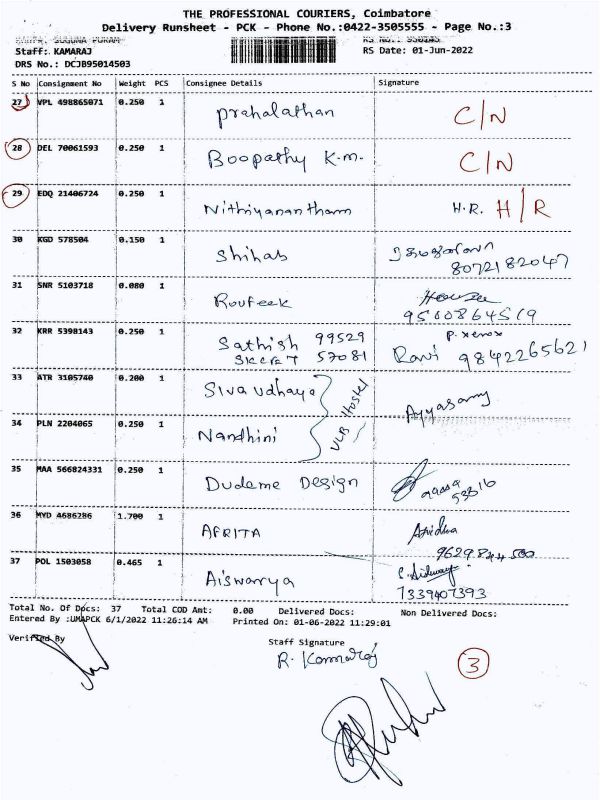 THE PROFESSIONAL COURIERS, Coimbatore
Delivery Runsheet - PCK - Phone No.:0422-3505555 - Page No.:3
Staff: KAMARAJ
RS Date: 01-Jun-2022
DRS No.: DCJB95014503
S No Consignment No Weight PCS Consignee Details Signature
27 VPL 498865071 0.250 1 Prahalathan C/N
28 DEL 70061593 0.250 1 Boopathy K.m. C/N
29 EDQ 21406724 0.250 1 Nithiyanantham H.R. H/R
30 KGD 578504 0.150 1 Shihab
8072182047
31 SNR 5103718 0.080 1 Roufeek
9500864519
32 KRR 5398143 0.250 1 Sathish 99529 P. xerox
SKCET 57081 Ravi 9842265621
33 ATR 3105740 0.200 1 Siva udhaya
VLB Hostel Ayyasamy
34 PLN 2204065 0.250 1 Nandhini
35 MAA 566824331 0.250 1 Dudeme Design
36 MYD 4686286 1.700 1 AFRITA
9629844500
37 POL 1503058 0.465 1 Aiswarya
7339407393
Total No. Of Docs: 37 Total COD Amt: 0.00 Delivered Docs: Non Delivered Docs:
Entered By :UMAPCK 6/1/2022 11:26:14 AM Printed On: 01-06-2022 11:29:01
Verified By Staff Signature
R. Kamaraj
3